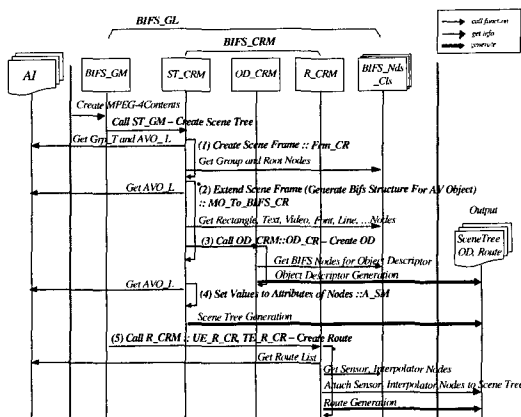 BIFS_GL
BIFS_CRM
call function
get info
generate
AI
BIFS_GM
ST_CRM
OD_CRM
R_CRM
BIFS_Nds
_Cls
Create MPEG-4Contents
Call ST_GM – Create Scene Tree
Get Grp_T and AVO_L
(1) Create Scene Frame :: Frm_CR
Get Group and Root Nodes
Get AVO_L
(2) Extend Scene Frame (Generate Bifs Structure For AV Object)
:: MO_To_BIFS_CR
Get Rectangle, Text, Video, Font, Line, ...Nodes
Output
(3) Call OD_CRM::OD_CR – Create OD
SceneTree
OD, Route
Get BIFS Nodes for Object Descriptor
Object Descriptor Generation
Get AVO_L
(4) Set Values to Attributes of Nodes ::A_SM
Scene Tree Generation
(5) Call R_CRM :: UE_R_CR, TE_R_CR – Create Route
Get Route List
Get Sensor, Interpolator Nodes
Attach Sensor, Interpolator Nodes to Scene Tree
Route Generation